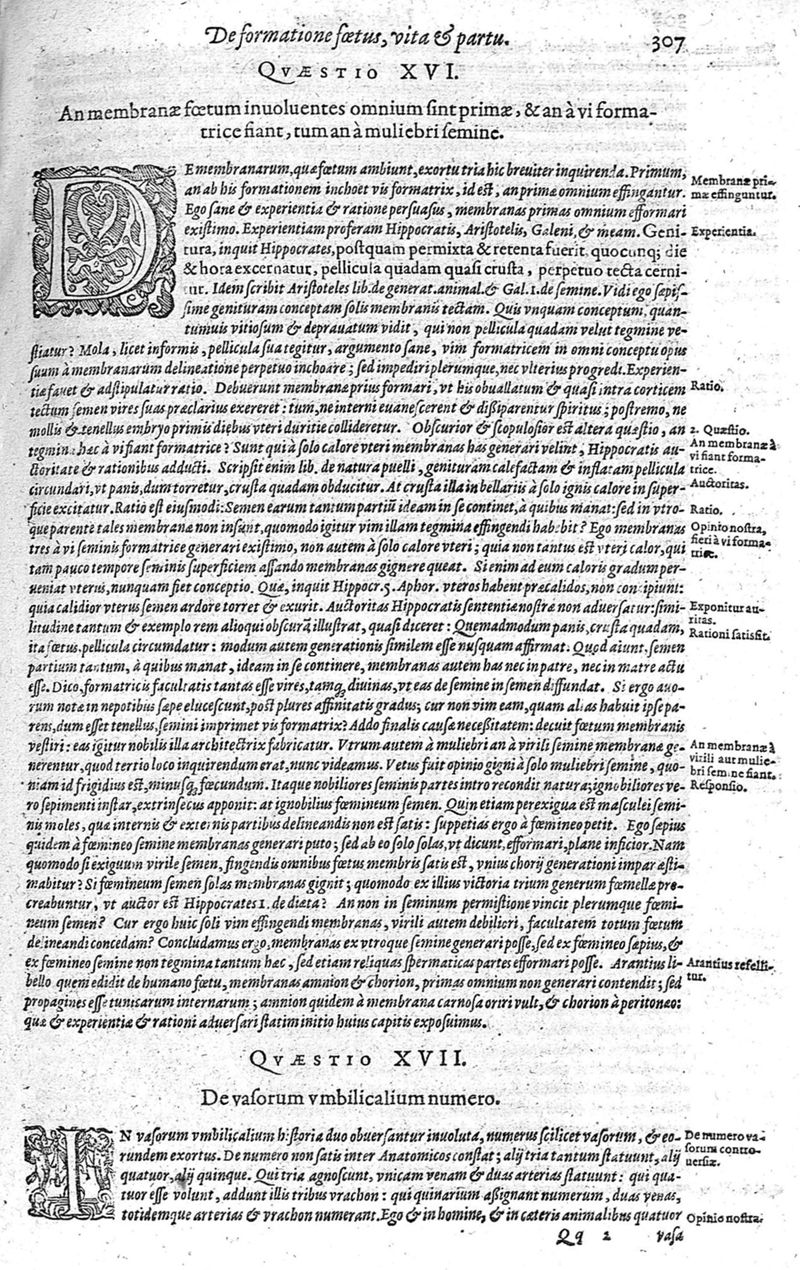 De formatione fœtus, vita & partu. 307
QVÆSTIO XVI.
An membranæ fœtum inuoluentes omnium sint primæ, & an à vi forma-
trice fiant, tum an à muliebri semine.
DE membranarum, quæ fœtum ambiunt, exortu tria hic breuiter inquirenda. Primum,
an ab his formationem inchoet vis formatrix, id est, an primæ omnium effingantur.
Membranæ pri-
mæ effinguntur.
Ego sane & experientia & ratione persuasus, membranas primas omnium efformari
existimo. Experientiam proferam Hippocratis, Aristotelis, Galeni, & meam. Geni-
Experientia.
tura, inquit Hippocrates, postquam permixta & retenta fuerit, quocunq; die
& hora excernatur, pellicula quadam quasi crusta, perpetuo tecta cerni-
tur. Idem scribit Aristoteles lib. de generat. animal. & Gal. 1. de semine. Vidi ego sæpis-
sime genituram conceptam solis membranis tectam. Quis vnquam conceptum, quan-
tumuis vitiosum & deprauatum vidit, qui non pellicula quadam velut tegmine ve-
stiatur? Mola, licet informis, pellicula sua tegitur, argumento sane, vim formatricem in omni conceptu opus
suum à membranarum delineatione perpetuo inchoare; sed impediri plerumque, nec vlterius progredi. Experien-
tiæ fauet & adstipulatur ratio. Debuerunt membranæ prius formari, vt his obuallatum & quasi intra corticem
Ratio.
tectum semen vires suas præclarius exereret: tum, ne interni euanescerent & dissiparentur spiritus; postremo, ne
mollis & tenellus embryo primis diebus vteri duritie collideretur. Obscurior & scopulosior est altera quæstio, an
2. Quæstio.
tegmina hæc à vi fiant formatrice? Sunt qui à solo calore vteri membranas has generari velint, Hippocratis au-
An membranæ à
vi fiant forma-
trice.
ctoritate & rationibus adducti. Scripsit enim lib. de natura puelli, genituram calefactam & inflatam pellicula
circundari, vt panis, dum torretur, crusta quadam obducitur. At crusta illa in bellariis à solo ignis calore in super-
Auctoritas.
ficie excitatur. Ratio est eiusmodi: Semen earum tantum partiū ideam in se continet, à quibus manat: sed in vtro-
Ratio.
que parente tales membranæ non insunt, quomodo igitur vim illam tegmina effingendi habebit? Ego membranas
Opinio nostra,
fieri à vi forma-
trice.
tres à vi seminis formatrice generari existimo, non autem à solo calore vteri; quia non tantus est vteri calor, qui
tam pauco tempore seminis superficiem assando membranas gignere queat. Si enim ad eum caloris gradum per-
ueniat vterus, nunquam fiet conceptio. Quæ, inquit Hippocr. 5. Aphor. vteros habent præcalidos, non concipiunt:
quia calidior vterus semen ardore torret & exurit. Auctoritas Hippocratis sententiæ nostræ non aduersatur: simi-
Exponitur au-
ritas.
litudine tantum & exemplo rem alioqui obscurā illustrat, quasi diceret: Quemadmodum panis, crusta quadam,
ita fœtus, pellicula circumdatur: modum autem generationis similem esse nusquam affirmat. Quod aiunt, semen
Rationi satisfit.
partium tantum, à quibus manat, ideam in se continere, membranas autem has nec in patre, nec in matre actu
esse. Dico, formatricis facultatis tantas esse vires, tamq; diuinas, vt eas de semine in semen diffundat. Si ergo auo-
rum notæ in nepotibus sæpe elucescunt, post plures affinitatis gradus; cur non vim eam, quam alias habuit ipse pa-
rens, dum esset tenellus, semini imprimet vis formatrix? Addo finalis causæ necessitatem: decuit fœtum membranis
vestiri: eas igitur nobilis illa architectrix fabricatur. Vtrum autem à muliebri an à virili semine membranæ ge-
An membranæ à
virili aut mulie-
bri semine fiant.
nerentur, quod tertio loco inquirendum erat, nunc videamus. Vetus fuit opinio gigni à solo muliebri semine, quo-
niam id frigidius est, minusq; fœcundum. Itaque nobiliores seminis partes intro recondit natura; ignobiliores ve-
Responsio.
ro sepimenti instar, extrinsecus apponit: at ignobilius fœmineum semen. Quin etiam perexigua est masculei semi-
nis moles, quæ internis & externis partibus delineandis non est satis: suppetias ergo à fœmineo petit. Ego sæpius
quidem à fœmineo semine membranas generari puto; sed ab eo solo solas, vt dicunt, efformari, plane inficior. Nam
quomodo si exiguum virile semen, fingendis omnibus fœtus membris satis est, vnius chorij generationi impar æsti-
mabitur? Si fœmineum semen solas membranas gignit; quomodo ex illius victoria trium generum fœmellæ pro-
creabuntur, vt auctor est Hippocrates 1. de diæta? An non in seminum permistione vincit plerumque fœmi-
neum semen? Cur ergo huic soli vim effingendi membranas, virili autem debiliori, facultatem totum fœtum
delineandi concedam? Concludamus ergo, membranas ex vtroque semine generari posse, sed ex fœmineo sæpius, &
ex fœmineo semine non tegmina tantum hæc, sed etiam reliquas spermaticas partes efformari posse. Arantius li-
Arantius refelli-
tur.
bello quem edidit de humano fœtu, membranas amnion & chorion, primas omnium non generari contendit; sed
propagines esse tunicarum internarum; amnion quidem à membrana carnosa oriri vult, & chorion à peritonæo:
quæ & experientiæ & rationi aduersari statim initio huius capitis exposuimus.
QVÆSTIO XVII.
De vasorum vmbilicalium numero.
IN vasorum vmbilicalium historia duo obuersantur inuoluta, numerus scilicet vasorum, & eo-
De numero va-
sorum contro-
uersiæ.
rundem exortus. De numero non satis inter Anatomicos constat; alij tria tantum statuunt, alij
quatuor, alij quinque. Qui tria agnoscunt, vnicam venam & duas arterias statuunt: qui qua-
tuor esse volunt, addunt illis tribus vrachon: qui quinarium assignant numerum, duas venas,
totidemque arterias & vrachon numerant. Ego & in homine, & in cæteris animalibus quatuor
Opinio nostra.
Qq 2 vasa